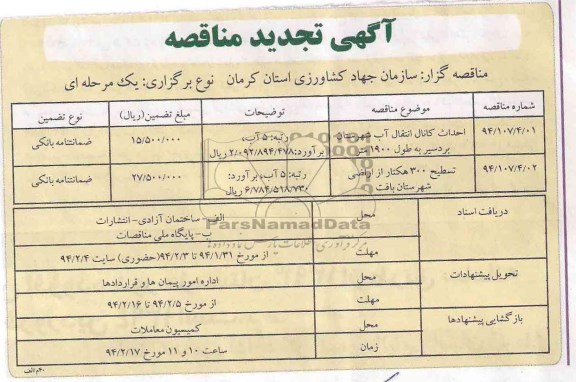 آگهی تجدید مناقصه
مناقصه گزار: سازمان جهاد کشاورزی استان کرمان نوع برگزاری: یک مرحله ای
شماره مناقصه موضوع مناقصه توضیحات مبلغ تضمین(ریال) نوع تضمین
۹۴/۱۰۷/۴/۰۱ احداث کانال انتقال آب شهرستان بردسیر به طول ۱۹۰۰ متر رتبه: ۵ آب، برآورد: ۲/۰۹۲/۸۹۴/۴۷۸ ریال ۱۵/۵۰۰/۰۰۰ ضمانتنامه بانکی
۹۴/۱۰۷/۴/۰۲ تسطیح ۳۰۰ هکتار از اراضی شهرستان بافت رتبه: ۵ آب، برآورد: ۶/۷۸۴/۵۱۸/۷۳۰ ریال ۲۷/۵۰۰/۰۰۰ ضمانتنامه بانکی
دریافت اسناد محل الف- ساختمان آزادی- انتشارات
ب- پایگاه ملی مناقصات
مهلت از مورخ ۹۴/۱/۳۱ تا ۹۴/۲/۳(حضوری) سایت ۹۴/۲/۴
تحویل پیشنهادات محل اداره امور پیمان ها و قراردادها
مهلت از مورخ ۹۴/۲/۵ تا ۹۴/۲/۱۶
بازگشایی پیشنهادها محل کمیسیون معاملات
زمان ساعت ۱۰ و ۱۱ مورخ ۹۴/۲/۱۷
ParsNamadData